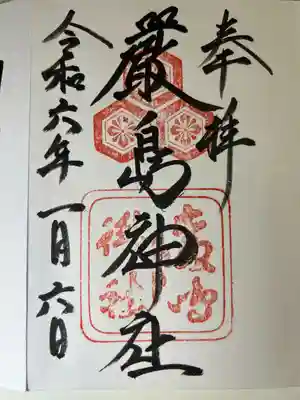 奉拝
厳島神社
令和六年一月六日